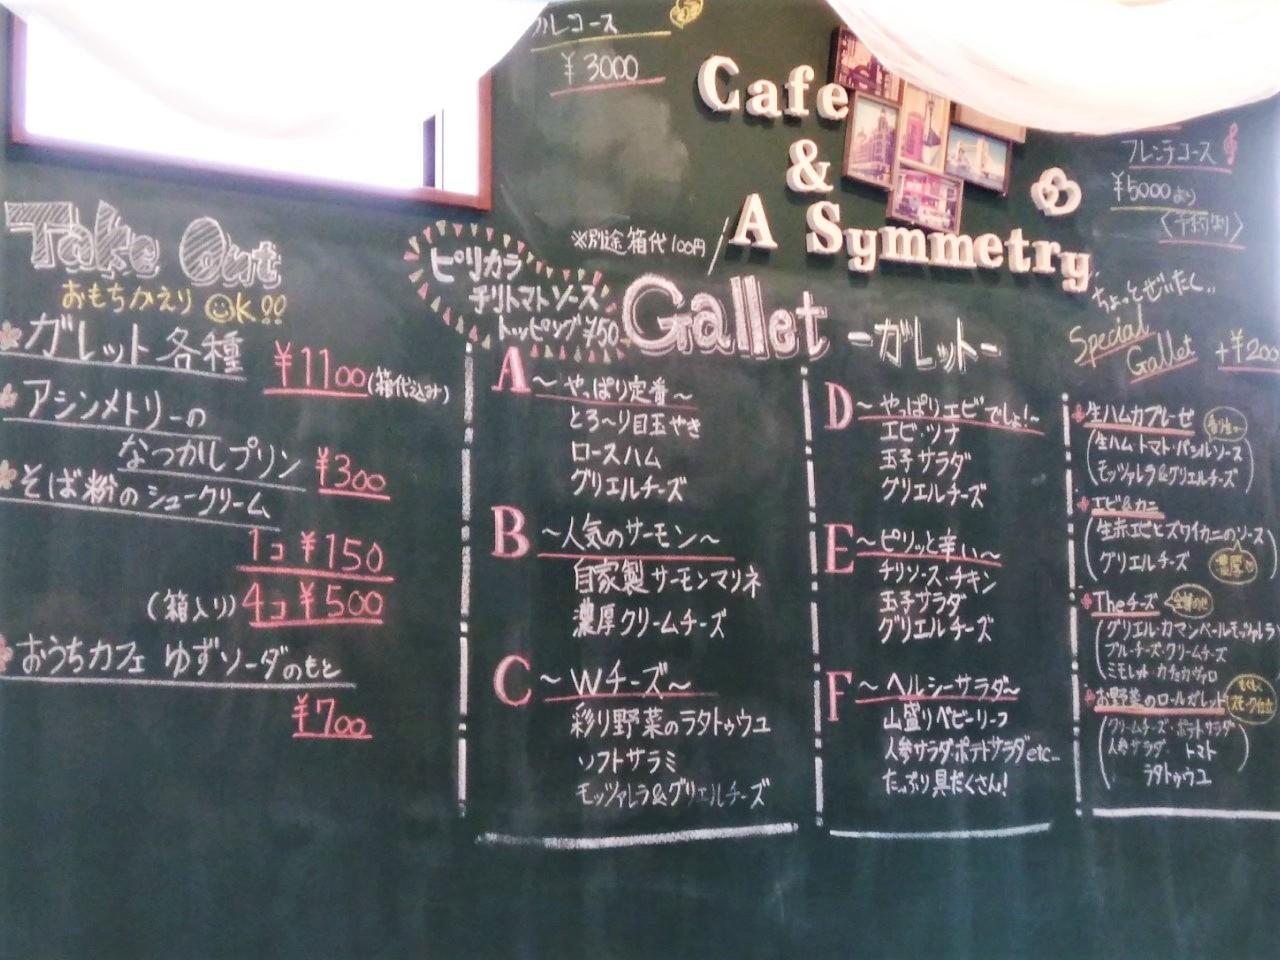 ルコース
¥3000
Cafe
&
A Symmetry
フレンチコース
¥5000より
〈予約制〉
Take Out
おもちかえりOK!!
ガレット各種
¥1100(箱代込み)
アシンメトリーの
なつかしプリン ¥300
そば粉のシュークリーム
1コ ¥150
(箱入り) 4コ ¥500
おうちカフェ ゆずソーダのもと
¥700
※別途箱代100円
ピリカラ
チリトマトソース
トッピング ¥50
Gallet
-ガレット-
A ～やっぱり定番～
とろ～り目玉やき
ロースハム
グリエルチーズ
B ～人気のサーモン～
自家製サーモンマリネ
濃厚クリームチーズ
C ～Wチーズ～
彩り野菜のラタトゥウユ
ソフトサラミ
モッツァレラ&グリエルチーズ
D ～やっぱりエビでしょ!～
エビ・ツナ
玉子サラダ
グリエルチーズ
E ～ピリッと辛い～
チリソース・チキン
玉子サラダ
グリエルチーズ
F ～ヘルシーサラダ～
山盛りベビーリーフ
人参サラダ・ポテトサラダetc...
たっぷり具だくさん!
ちょっとぜいたく..
Special
Gallet +¥200
生ハムカプレーゼ
(生ハム トマト・バジルソース
モッツァレラ&グリエルチーズ)
エビ&カニ
(生赤エビとズワイカニのソース
グリエルチーズ)
濃厚
Theチーズ
(グリエル・カマンベール・モッツァレラ
ブルーチーズ・クリームチーズ
ミモレット・カチョカヴァロ)
お野菜のロールガレット
(クリームチーズ・ポテトサラダ
人参サラダ・トマト
ラタトゥウユ)